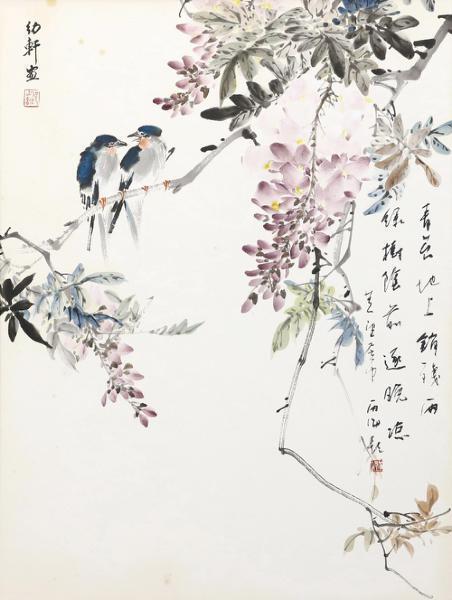 幼軒畫
青苔地上銷殘雨
綠樹陰前逐晚涼
庚申